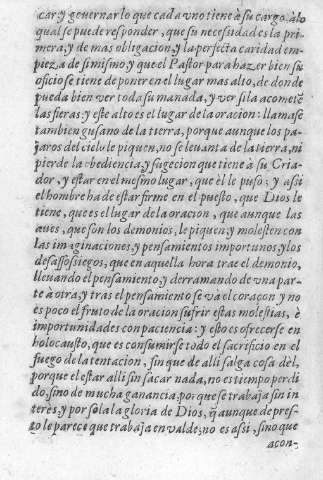 car, y gevernar lo que cada vno tiene à su cargo. à lo
qual se puede responder, que su necesidad es la pri
mera, y de mas obligacion, y la perfecta caridad em
pieza de si mismo, y que el Pastor para hazer bien su
oficio se tiene de poner en el lugar mas alto, de donde
pueda bien ver toda su manada, y ver si la acometē
las fieras: y este alto es el lugar de la oracion: llamase
tambien gusano de la tierra, porque aunque los pa-
jaros del cielo le piquen, no se leuanta de la tierra, ni
pierde la obediencia, y sugecion que tiene à su Cria-
dor, y estar en el mesmo lugar, que èl le puso; y assi
el hombre ha de estar firme en el puesto, que Dios le
tiene, que es el lugar de la oracion, que aunque las
aues, que son los demonios, le piquen, y molesten con
las imaginaciones, y pensamientos importunos, y los
desassosiegos, que en aquella hora trae el demonio,
lleuando el pensamiento, y derramando de vna par-
te à otra, y tras el pensamiento se và el coraçon y no
es poco el fruto de la oracion sufrir estas molestias, è
importunidades con paciencia: y esto es ofrecerse en
holocausto, que es consumirse todo el sacrificio en el
fuego de la tentacion, sin que de alli salga cosa dèl,
porque el estar alli sin sacar nada, no es tiempo perdi
do, sino de mucha ganancia. porque se trabaja sin in
teres, y por sola la gloria de Dios, q̃ aunque de pres-
to le parece que trabaja en valde, no es assi, sino que
acon-